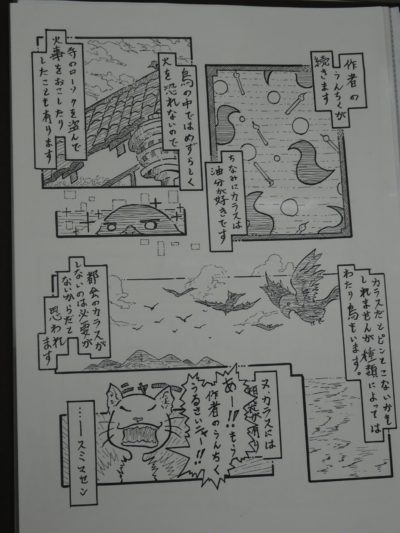 作者の
うんちくが
続きます
ちなみにカラスは
油分が好きです
鳥の中ではめずらしく
火を恐れないので
寺のローソクを盗んで
火事をおこしたり
したことも有ります
カラスだとピンとこないかも
しれませんが種類によっては
わたり鳥もいます。
都会のカラスが
しないのは必要が
ないからだと
思われます
又カラスには
あー!!もう
作者のうんちく
うるさいニャー!!
…スミマセン